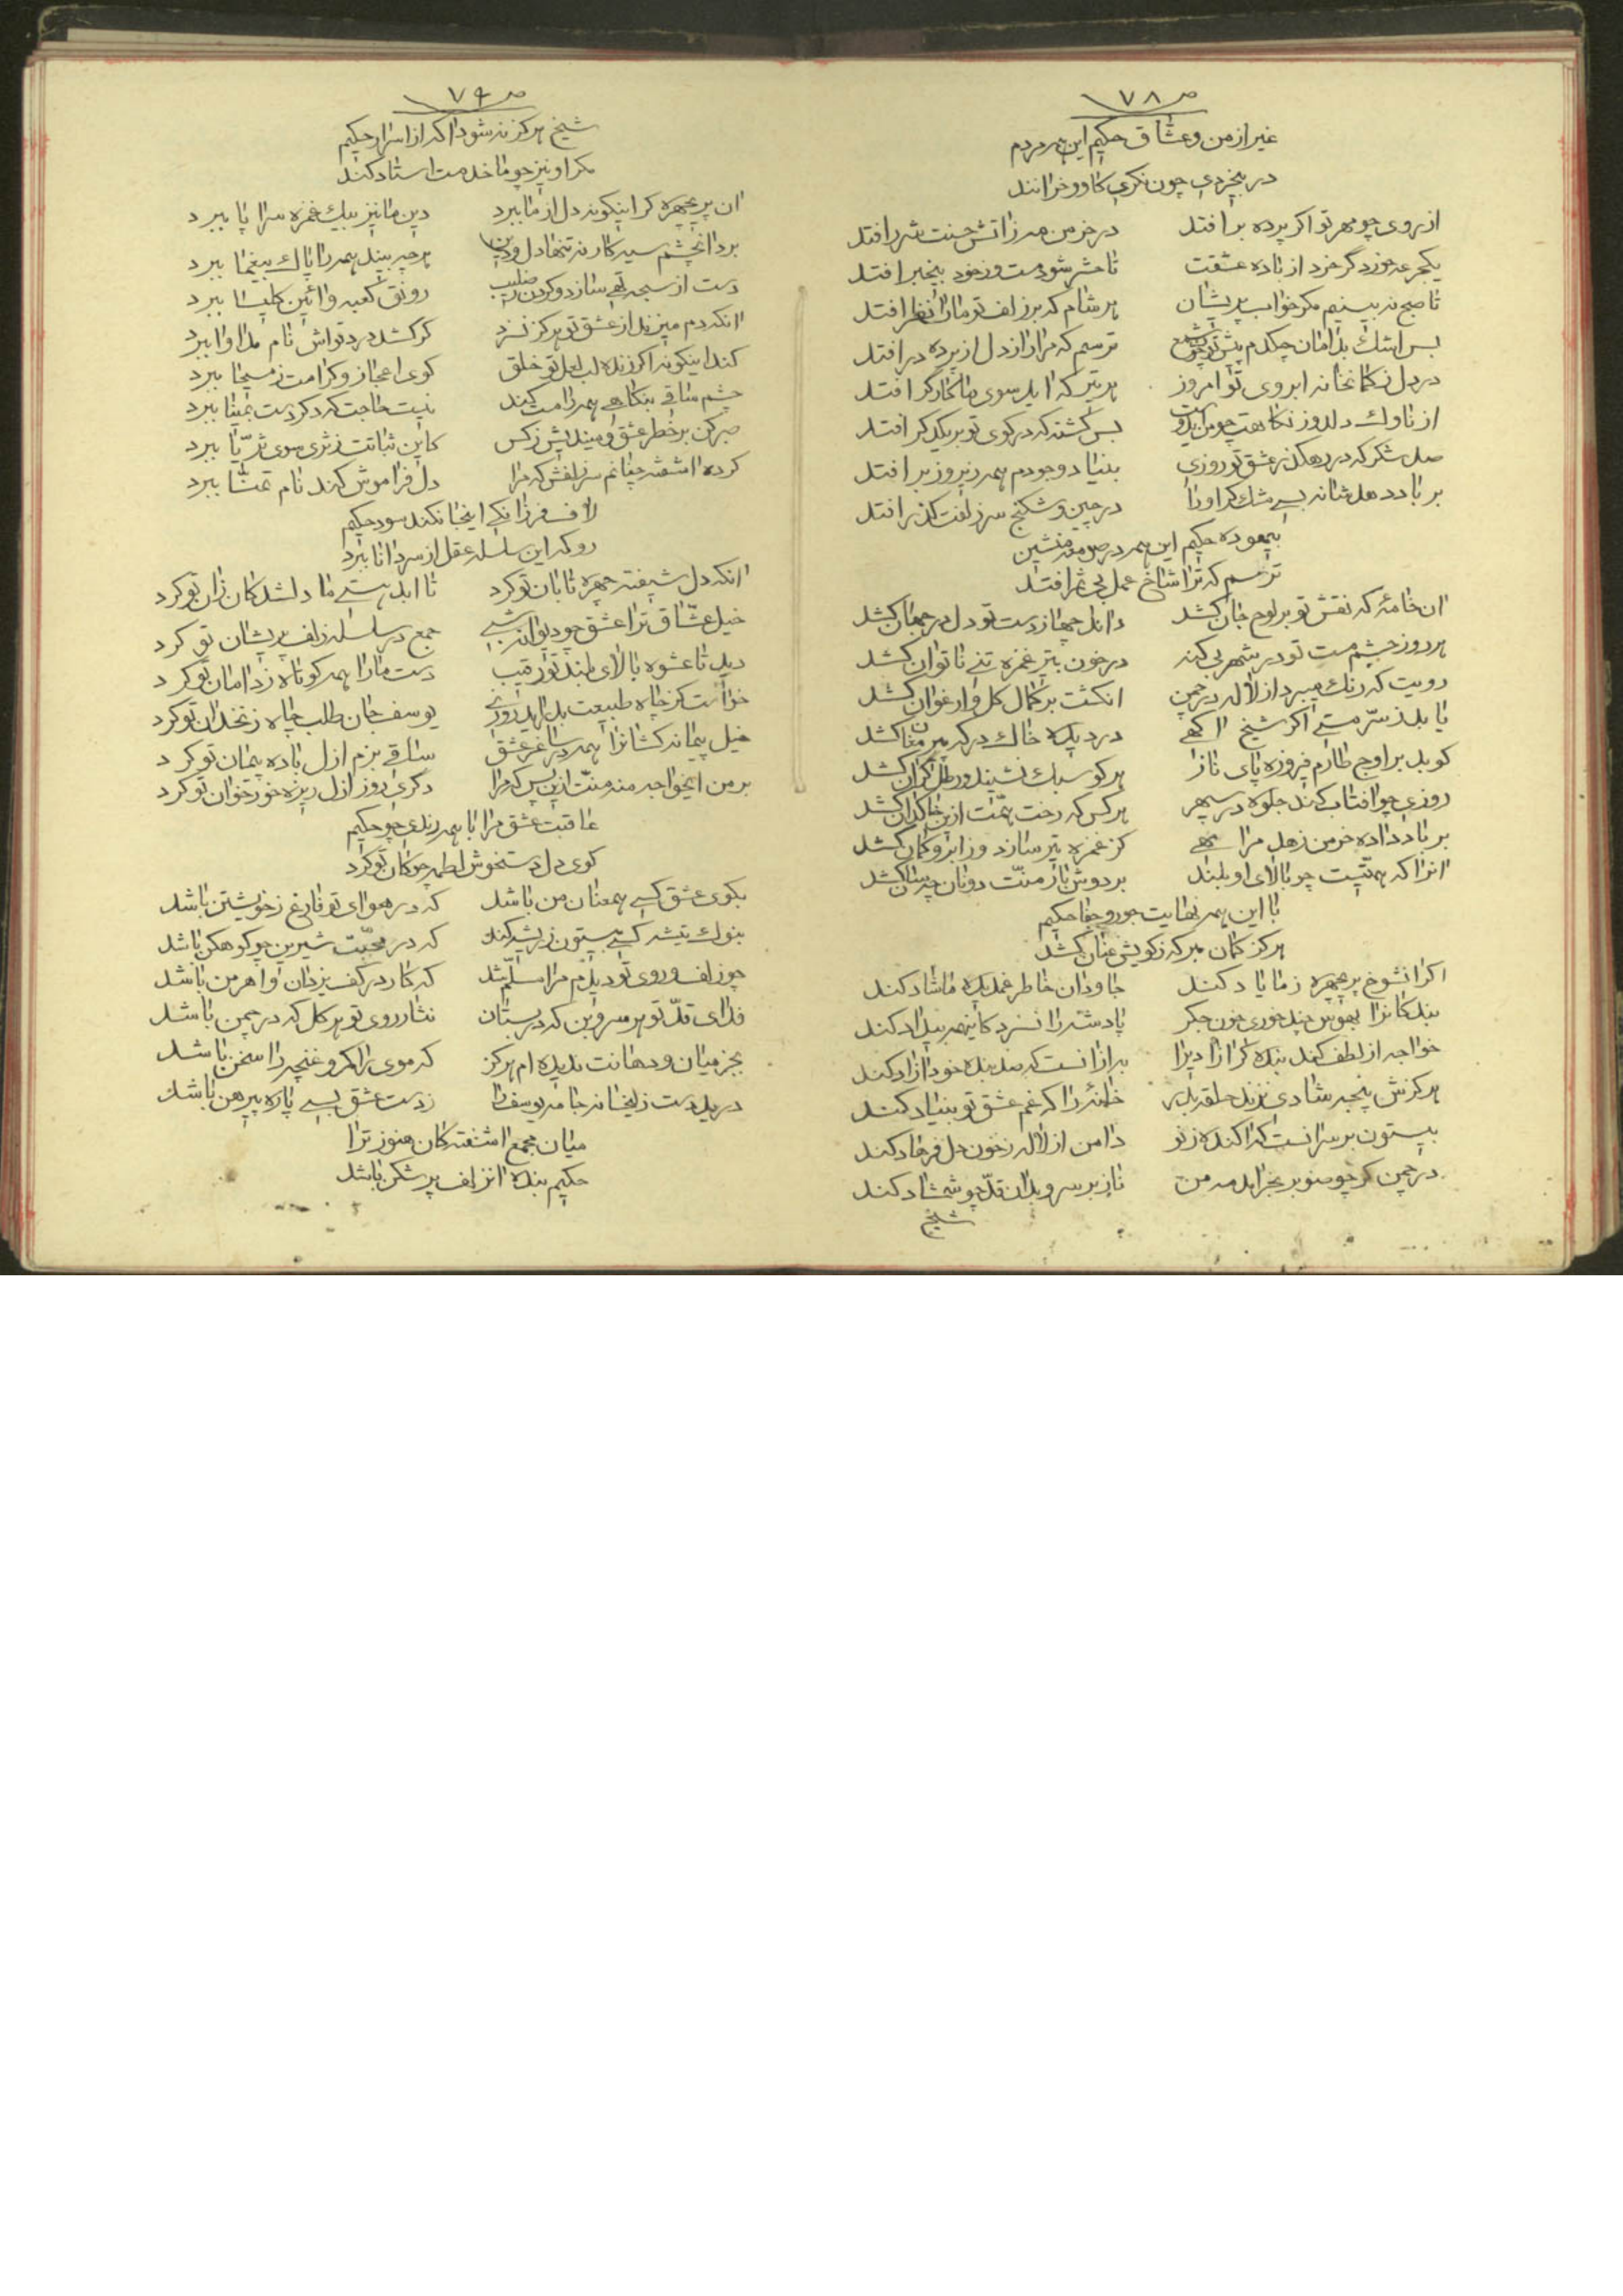 ص ۷۸
غیر از من و عشاق حکیم این همه مردم
در بیخردی چون نکری کاو و خرانند
از روی چو مهر تو اگر پرده بر افتد در خرمن مه ز اتش حسنت شرر افتد
یکجرعه خورد گر خرد از باده عشقت تا حشر شود مست و ز خود بیخبر افتد
تا صبح نه بینم مکر خواب پریشان هر شام که بر زلف تو مارا نظر افتد
بس اشک بدامان چکدم پیش تو چون شمع ترسم که مرا راز دل از پرده در افتد
در دل ز کمانخانه ابروی تو امروز هر تیر که اید سوی ما کارکر افتد
از ناوک دلدوز نکاهت چو من بس کشته که در کوی تو بر یکدکر افتد
صد شکر که در رهکذر عشق تو روزی بنیاد وجودم همه زیر و زبر افتد
بر باد دهد شانه بسی مشک کر او را در چین و شکنج سر زلفت کذر افتد
بیهوده حکیم این همه در صومعه منشین
ترسم که ترا شاخ عمل بی ثمر افتد
ان خامهٔ که نقش تو بر لوح جان کشد داند چها ز دست تو دل در جهان کشد
هر روز چشم مست تو در شهر بی کنه در خون بتیر غمزه تنی ناتوان کشد
رویت که رنک میبرد از لاله در چمن انکشت بر کمال کل و ارغوان کشد
یابد ز سر مستی اکر شیخ اکهی درد پکه خاک درکه پیر مغان کشد
کوبد بر اوج طارم فیروزه پای ناز هر کو سبک نشیند و رطل کران کشد
روزی چو افتاب کند جلوه در سپهر هر کس که رخت همت ازین خاکدان کشد
بر باد داده خرمن زهد مرا مهی کز غمزه تیر سازد و ز ابرو کمان کشد
انرا که همتیست چو بالای او بلند بر دوش بار منت دونان چسان کشد
با این همه نهایت جور و جفا حکیم
هرکز کمان مبر که ز کویش عنان کشد
اکر انشوخ پریچهره ز ما یاد کند جاودان خاطر غمدیده ما شاد کند
بندکانرا بهوس چند خوری خون جکر پادشه را نسزد کاینهمه بیداد کند
خواجه از لطف کند بنده کر ازاد یرا به از انست که صد بنده خود ازاد کند
هرکزش پنجه شادی نزند حلقه بدر خانهٔ را که غم عشق تو بنیاد کند
بیستون بر سر انست که اکنده ز نو دامن از لاله ز خون دل فرهاد کند
در چمن کر چو صنوبر بخرامد مه من ناز بر سرو بدان قد چو شمشاد کند
شیخ
ص ۷۹
شیخ هرکز نه شود اکه از اسرار حکیم
مکر او نیز چو ما خدمت استاد کند
ان پریچهره کر اینکونه دل از ما ببرد دین ما نیز بیک غمزه سراپا ببرد
برد انچشم سیه کار نه تنها دل و دین هر چه بیند همه را پاک بیغما ببرد
دست از سبحه تهی سازد و کردن ز صلیب رونق کعبه و ائین کلیسا ببرد
انکه دم میزند از عشق تو هرکز نسزد کر کشد درد تواش نام مداوا ببرد
کند اینکونه اکر زنده لب لعل تو خلق کوی اعجاز و کرامت ز مسیحا ببرد
چشم ساقی بنکاهی همه را مست کند نیست حاجت که دکر دست بمینا ببرد
صبر کن بر خطر عشق و میندیش ز کس کاین ثباتت ز ثری سوی ثریا ببرد
کرده اشفته چنانم سر زلفش که مرا دل فراموش کند نام تمنا ببرد
لاف فرزانکی اینجا نکند سود حکیم
رو که این سلسله عقل از سر دانا ببرد
انکه دل شیفته چهره تابان تو کرد تا ابد هستی ما دلشدکان زان تو کرد
خیل عشاق ترا عشق چو دیوانه شبی جمع در سلسله زلف پریشان تو کرد
دید تا عشوه بالای بلند تو رقیب دست مارا همه کوتاه ز دامان تو کرد
خواست کز چاه طبیعت بدراید روزی یوسف جان طلب چاه زنخدان تو کرد
خیل پیمانه کشانرا همه در ساغر عشق ساقی بزم ازل باده پیمان تو کرد
بر من ایخواجه منه منت ازین پس که مرا دکری روز ازل ریزه خور خوان تو کرد
عاقبت عشق مرا با همه رندی چو حکیم
کوی دل دستخوش لطمه چوکان تو کرد
بکوی عشق کسی همعنان من باشد که در هوای تو فارغ ز خویشتن باشد
بنوک تیشه کسی بیستون ز ریشه کند که در محبت شیرین چو کوهکن باشد
چو زلف و روی تو دیدم مرا مسلم شد که کار در کف یزدان و اهرمن باشد
فدای قد تو هر سرو بن که در بستان نثار روی تو هر کل که در چمن باشد
بجز میان و دهانت ندیده ام هرکز که موی را کمر و غنچه را سخن باشد
دریده دست زلیخا نه جامه یوسف را ز دست عشق بسی پاره پیرهن باشد
میان مجمع اشفتکان هنوز ترا
حکیم بنده انزلف پر شکن باشد